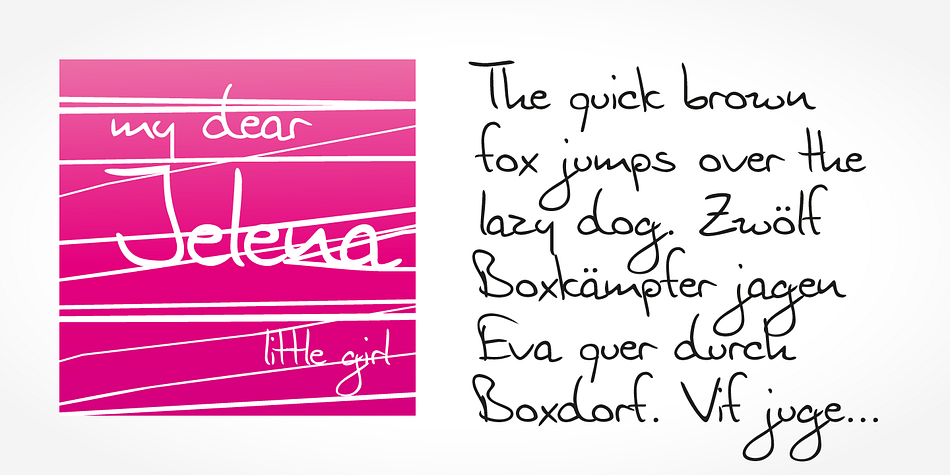 my dear
Jelena
little girl
The quick brown
fox jumps over the
lazy dog. Zwölf
Boxkämpfer jagen
Eva quer durch
Boxdorf. Vif juge...